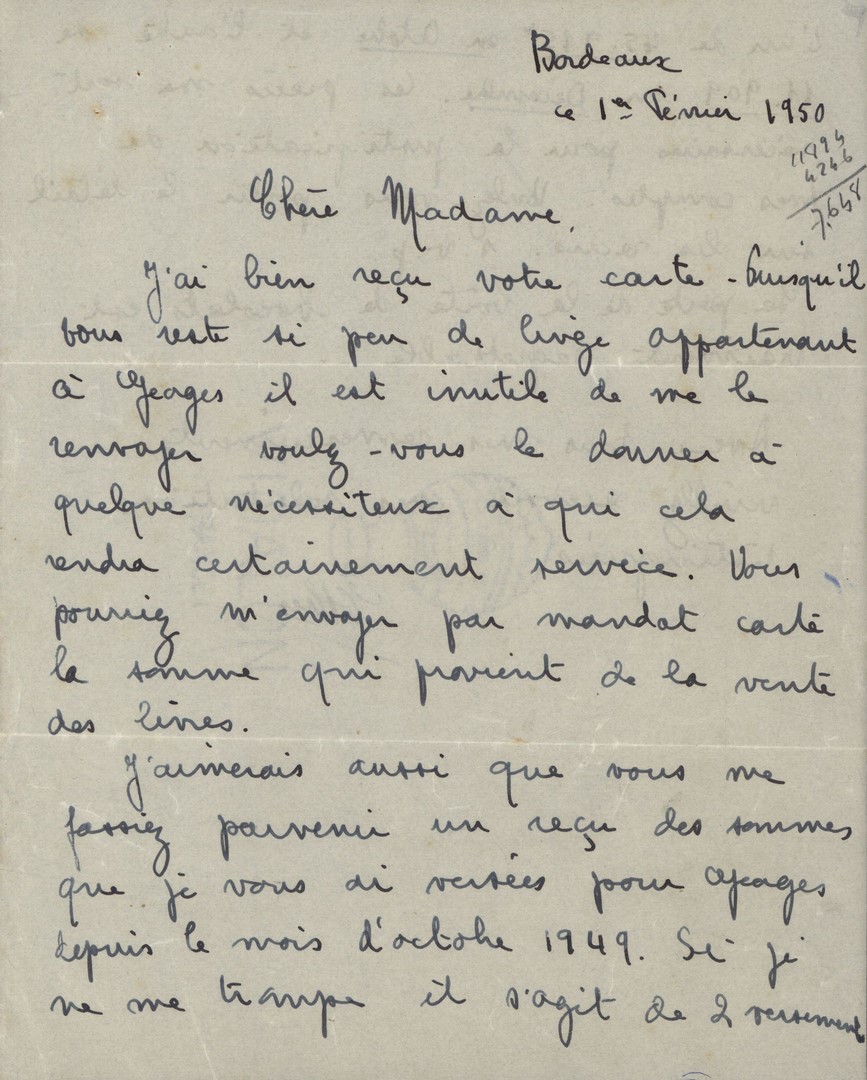 Bordeaux
ce 1er Février 1950
11894
4246
7.648
Chère Madame,
J'ai bien reçu votre carte - Puisqu'il
vous reste si peu de linge appartenant
à Georges il est inutile de me le
renvoyer voulez-vous le donner à
quelque nécessiteux à qui cela
rendra certainement service. Vous
pourriez m'envoyer par mandat carte
la somme qui provient de la vente
des livres.
J'aimerais aussi que vous me
fassiez parvenir un reçu des sommes
que je vous ai versées pour Georges
depuis le mois d'octobre 1949. Si je
ne me trompe il s'agit de 2 versements